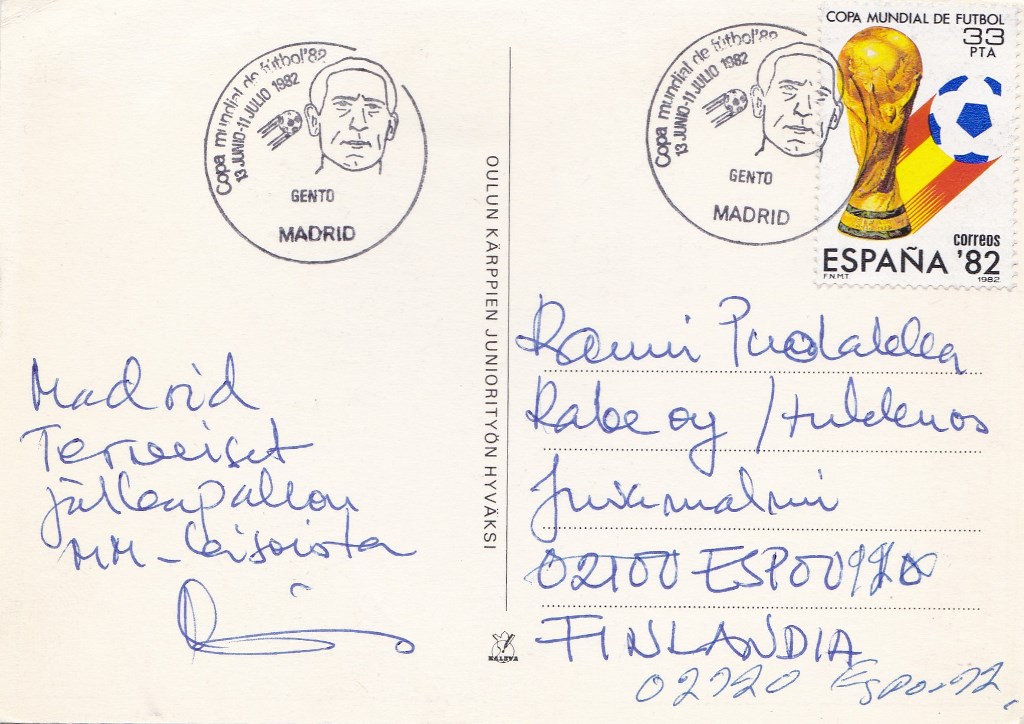 Copa mundial de fútbol'82
13 JUNIO-11 JULIO 1982
GENTO
MADRID
Copa mundial de fútbol'82
13 JUNIO-11 JULIO 1982
GENTO
MADRID
COPA MUNDIAL DE FUTBOL
33
PTA
correos
ESPAÑA '82
F.N.M.T. 1982
Madrid
Terveiset
jalkapallon
MM-kisoista
OULUN KÄRPPIEN JUNIORITYÖN HYVÄKSI
KALEVA
Rami
Rake oy /
02100 ESPOO
FINLANDIA
02720 Espoo